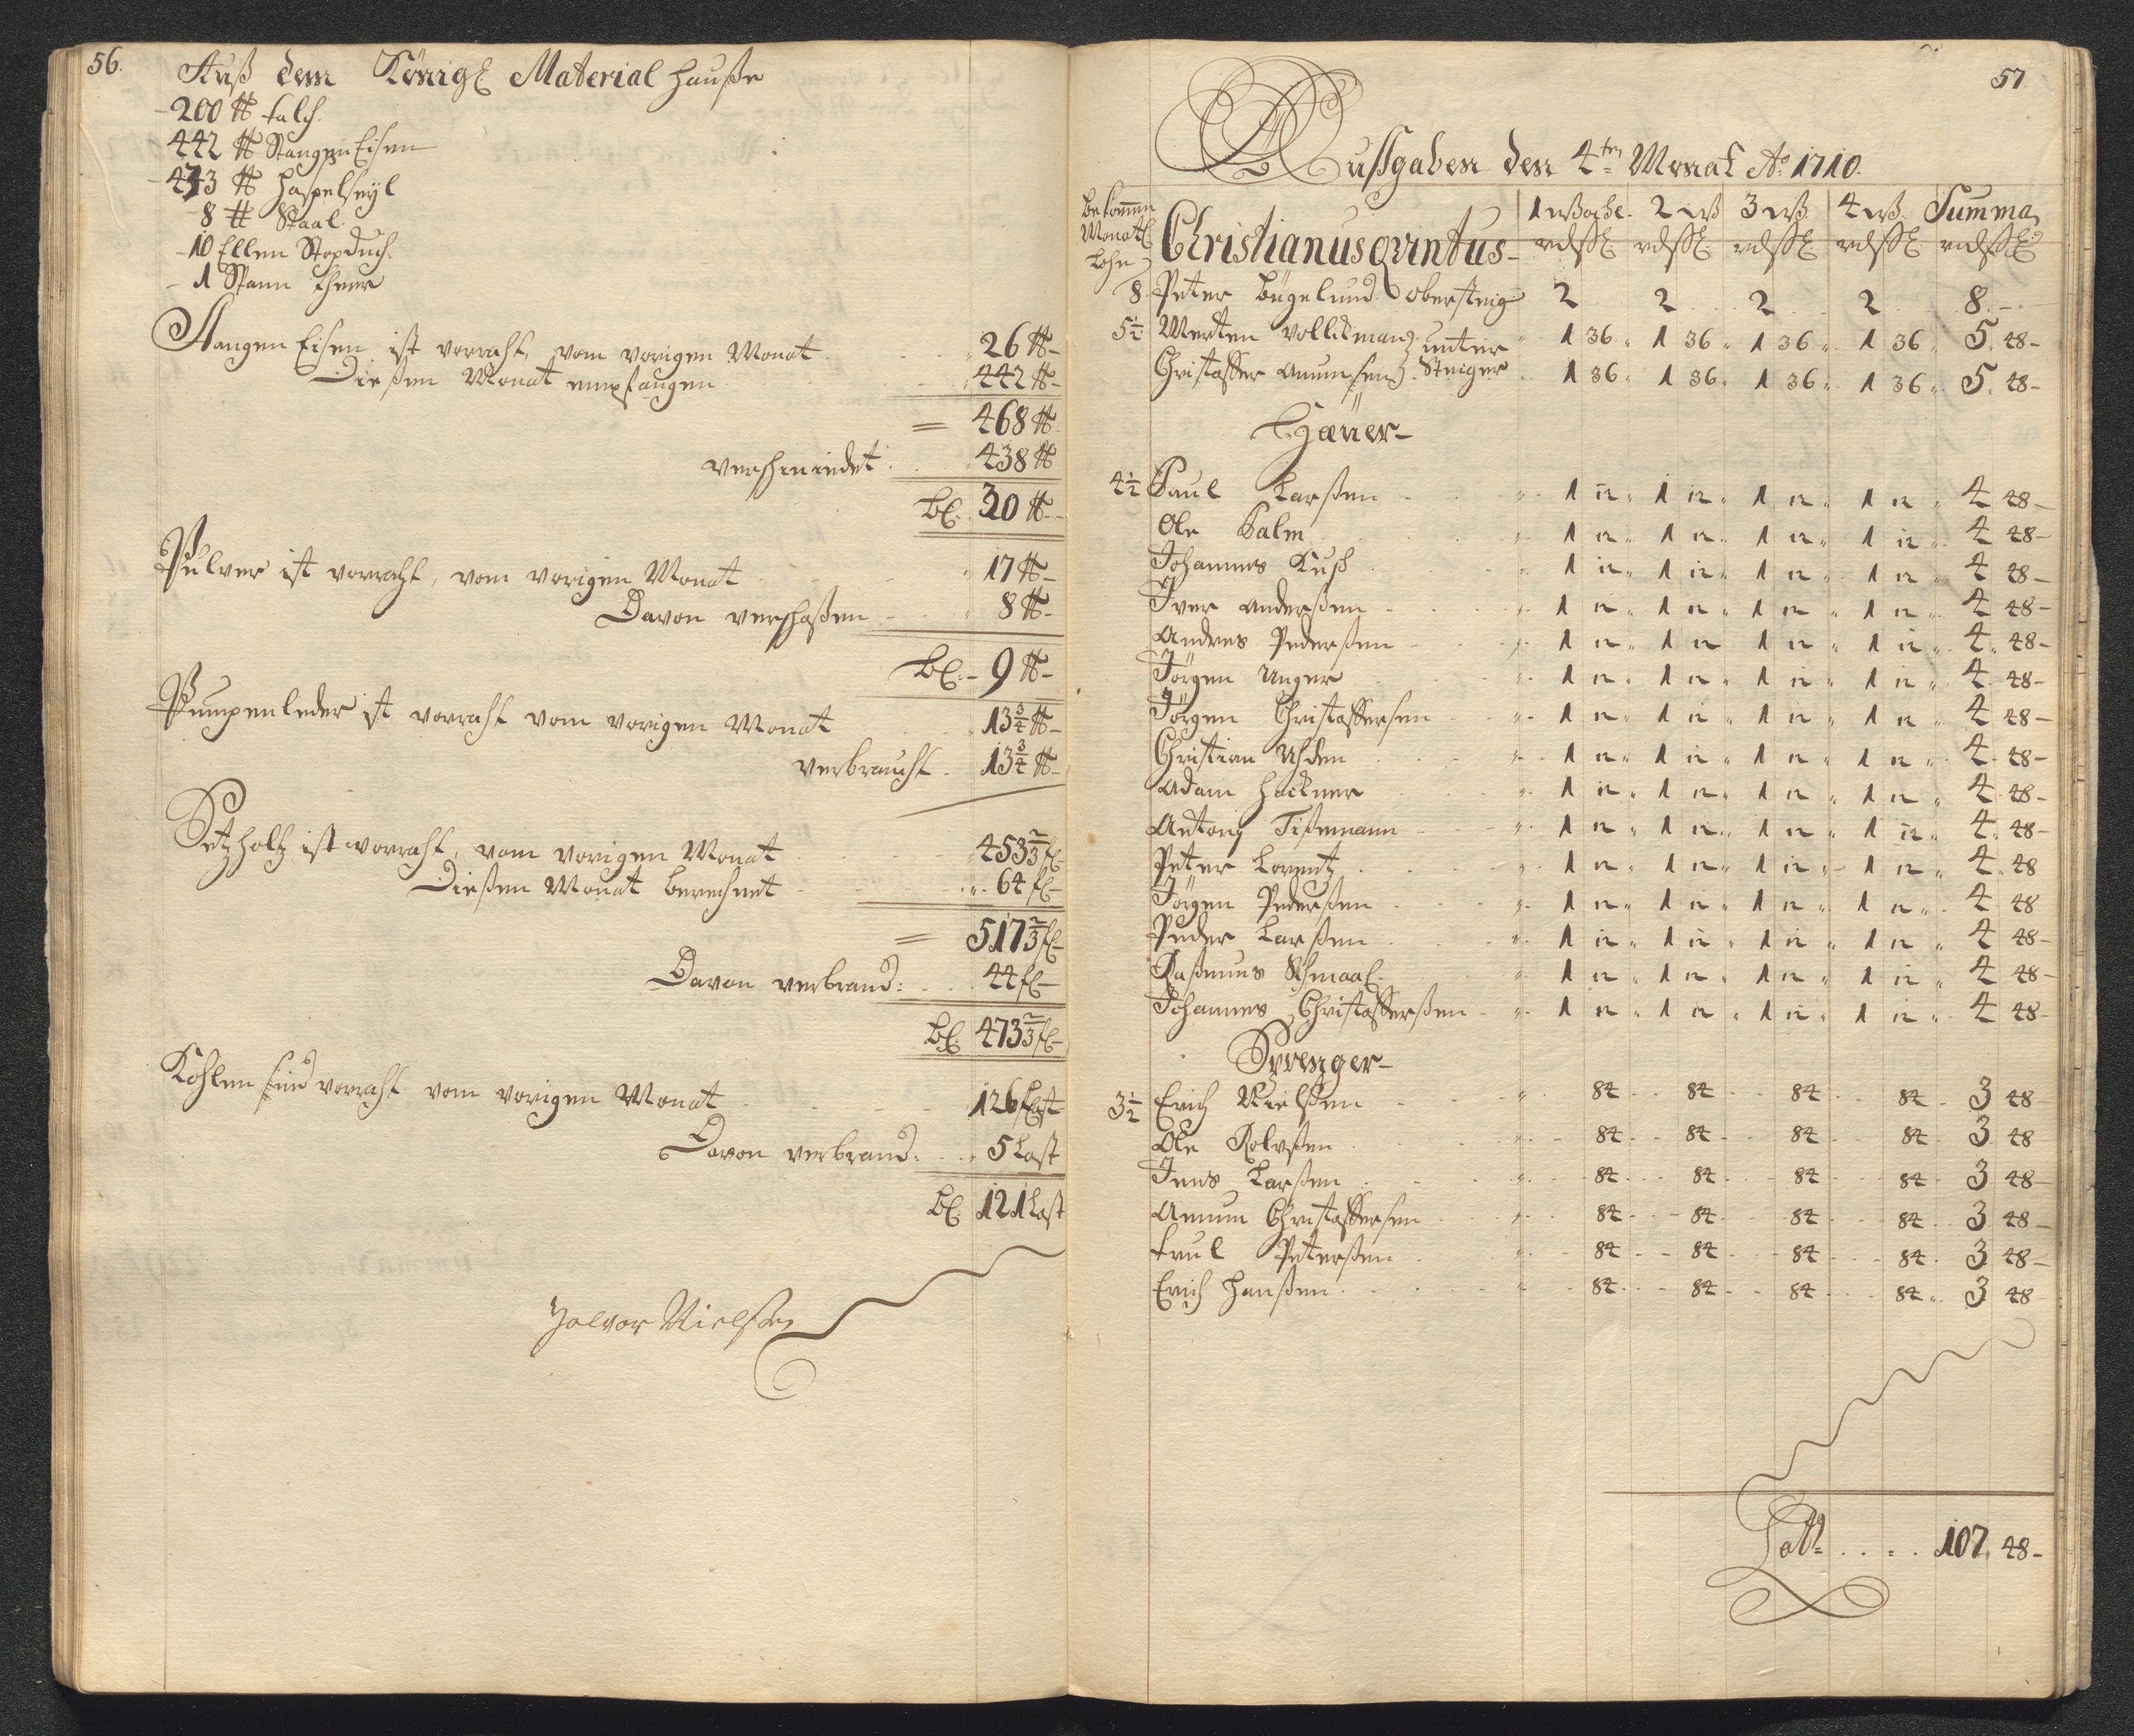 56.
Auß dem Königl Material Hauße
- 200 ℔ talch.
442 ℔ Stangen Eisen
- 473 ℔ Haspelseÿl
- 8 ℔ Staal.
- 10 Ellen Stopduch.
- 1 Stann Theer
Stangen Eisen ist vorraht vom vorigen Monat . . . 26 ℔ -
Dießen Monat empfangen . . . 442 ℔ -
= 468 ℔
verschmiedet . . . 438 ℔
bl: 30 ℔ -
Pulver ist vorraht, vom vorigen Monat . . . 17 ℔ -
Davon verschoßen . . . 8 ℔ -
bl: - 9 ℔ -
Pumpenleder ist vorraht vom vorigen Monat . . . 13 3/4 ℔ -
verbraucht . 13 3/4 ℔ -
Setzholtz ist vorraht, vom vorigen Monat . . . 453 2/3 fl
Dießen Monat berechnet . . . 64 fl -
= 517 2/3 fl -
Davon verbrand: . . . 44 fl -
bl: 473 2/3 fl -
Kohlen sind vorraht vom vorigen Monat . . . 126 Last
Davon verbrand: . . . 5 Last
bl: 121 Last
Halvor Nielsen
57
Außgaben den 4ten Monat Ao: 1710.
bekommen Monatl Lohn
1 Woche. 2 W 3 W 4 W Summa
Christianus Qvintus - rdß rdß rdß rdß rdß
8. Peter Bügelund Obersteig 2 2 2 2 8. -
5 1/2 Merten Vollckman unter 1 36 1 36 1 36 1 36 5. 48 -
Christoffer Amundsen Steiger 1 36 1 36 1 36 1 36 5. 48 -
Häüer -
4 1/2 Paul Larßen . . . 1 12 1 12 1 12 1 12 4 48 -
Ole Palm . . . 1 12 1 12 1 12 1 12 4 48 -
Johannes Kuß . . . 1 12 1 12 1 12 1 12 4 48 -
Iver Anderßen . . . 1 12 1 12 1 12 1 12 4 48 -
Andres Pederßen . . . 1 12 1 12 1 12 1 12 4. 48 -
Jörgen Unger . . . 1 12 1 12 1 12 1 12 4. 48 -
Jörgen Christoffersen . . . 1 12 1 12 1 12 1 12 4 48 -
Christian Uhden . . . 1 12 1 12 1 12 1 12 4. 48 -
Adam Hackner . . . 1 12 1 12 1 12 1 12 4. 48 -
Antony Tißemann . . . 1 12 1 12 1 12 1 12 4. 48 -
Peter Lorentz . . . 1 12 1 12 1 12 1 12 4. 48
Jörgen Pederßen . . . 1 12 1 12 1 12 1 12 4 48
Peder Larßen . . . 1 12 1 12 1 12 1 12 4 48 -
Raßmus Schmaal . . . 1 12 1 12 1 12 1 12 4 48 -
Johannes Christofferßen . . . 1 12 1 12 1 12 1 12 4 48 -
Sprenger -
3 1/2 Erich Nielßen . . . 84 84 84 84 3 48
Ole Rolvßen . . . 84 84 84 84 3. 48
Jens Larßen . . . 84 84 84 84 3 48 -
Amun Christoffersen . . . 84 84 84 84 3 48 -
Trul Peterßen . . . 84 84 84 84 3 48 -
Erich Hanßen . . . 84 84 84 84 3 48
Latt . . . . 107. 48 -